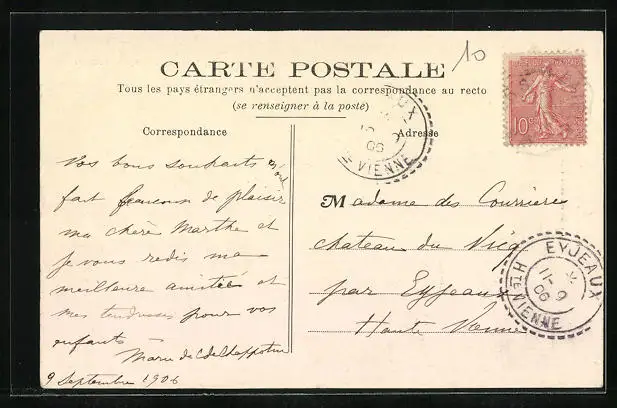 10
CARTE POSTALE
Tous les pays étrangers n'acceptent pas la correspondance au recto
(se renseigner à la poste)
Correspondance
Vos bons souhaits m'ont
fait beaucoup de plaisir
ma chère Marthe et
je vous redis ma
meilleure amitié et
mes tendresses pour vos
enfants
Marie de
9 Septembre 1906
Adresse
Madame des Courrières
chateau du
par Eyjeaux
Haute Vienne
10c
06
VIENNE
EYJEAUX
11-9
06
HTE VIENNE